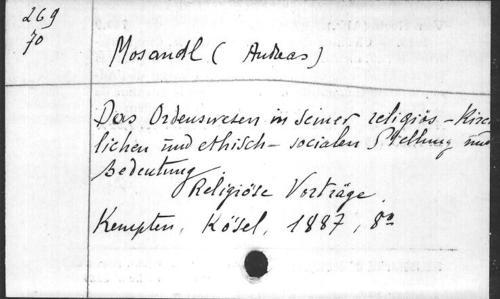 269
70
Mosandl ( Andreas )
Das Ordenswesen in seiner religiös - Kirch
lichen und ethisch - socialen Stellung und
Bedeutung.
Religiöse Vorträge.
Kempten, Kösel, 1887, 8°